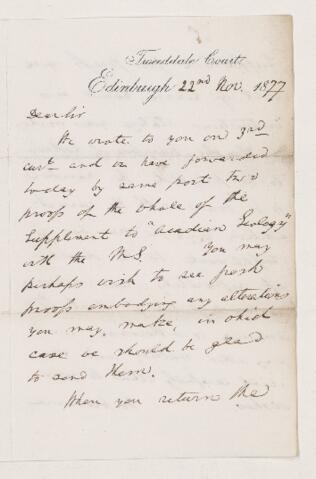 Tweeddale Court
Edinburgh 22nd Nov. 1877
Dear Sir
We wrote to you on 3rd
curt. and we have forwarded
today by same post two
proofs of the whole of the
Supplement to "Acadian Geology"
with the MS. You may
perhaps wish to see fresh
proofs embodying any alterations
you may make, in which
case we should be glad
to send them.
When you return the